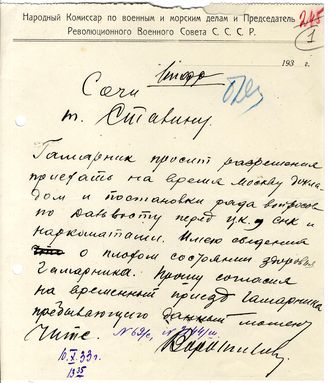 Народный Комиссар по военным и морским делам и Председатель
Революционного Военного Совета С. С. С. Р.
245
1
193 г.
Шифр
Сочи
т. Сталину
Гамарник просит разрешения
приехать на время Москву докла-
дом и постановки ряда вопросов
по Дальвосту перед цк, снк и
наркоматами. Имею сведения
о плохом состоянии здоровья
Гамарника. Прошу согласия
на временный приезд Гамарника
пребывающего данный момент
Чите.
Ворошилов
10.X.33г.
13 35